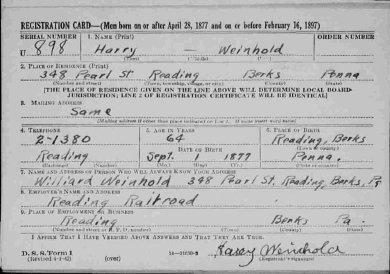 REGISTRATION CARD—(Men born on or after April 28, 1877 and on or before February 16, 1897)
SERIAL NUMBER 1. NAME (Print) ORDER NUMBER
U 898 Harry — Weinhold
(First) (Middle) (Last)
2. PLACE OF RESIDENCE (Print)
348 Pearl St Reading Berks Penna
(Number and street) (Town, township, village, or city) (County) (State)
[THE PLACE OF RESIDENCE GIVEN ON THE LINE ABOVE WILL DETERMINE LOCAL BOARD
JURISDICTION; LINE 2 OF REGISTRATION CERTIFICATE WILL BE IDENTICAL]
3. MAILING ADDRESS
Same
[Mailing address if other than place indicated on line 2. If same insert word same]
4. TELEPHONE 5. AGE IN YEARS 6. PLACE OF BIRTH
2-1380 64 Reading, Berks
DATE OF BIRTH (Town or county)
Reading Sept. 1877 Penna.
(Exchange) (Number) (Mo.) (Day) (Yr.) (State or country)
7. NAME AND ADDRESS OF PERSON WHO WILL ALWAYS KNOW YOUR ADDRESS
Williard Weinhold 348 Pearl St. Reading, Berks, Pa
8. EMPLOYER'S NAME AND ADDRESS
Reading Railroad
9. PLACE OF EMPLOYMENT OR BUSINESS
Reading Berks Pa.
(Number and street or R. F. D. number) (Town) (County) (State)
I AFFIRM THAT I HAVE VERIFIED ABOVE ANSWERS AND THAT THEY ARE TRUE.
D. S. S. Form 1 Harry Weinhold
(Revised 4-1-42) (over) (Registrant's signature)